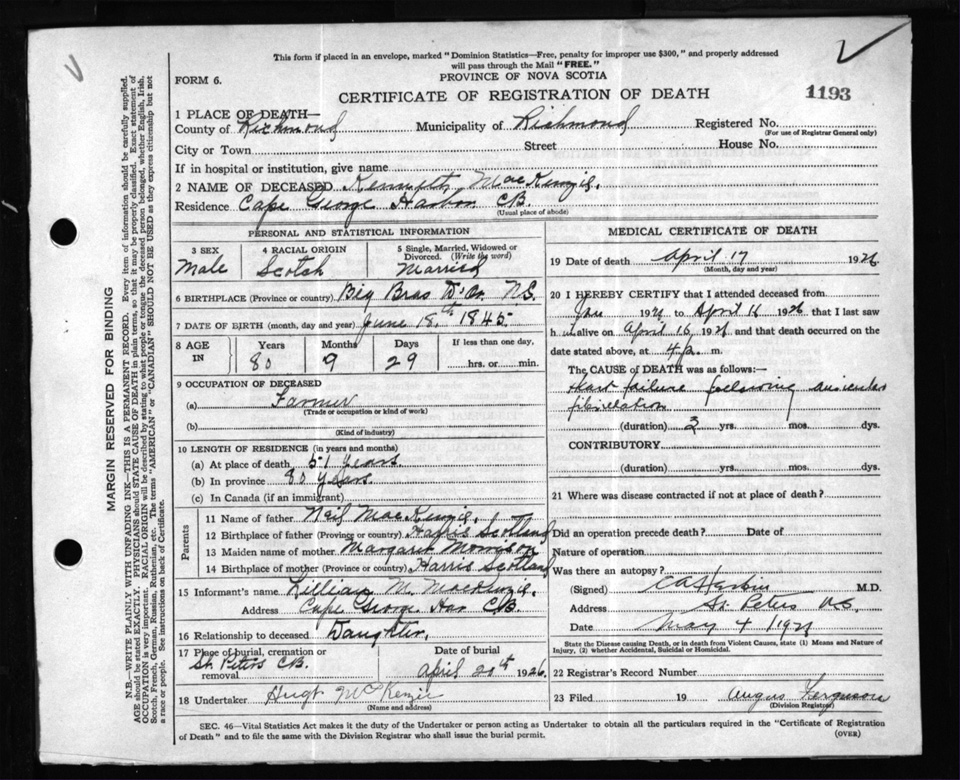 This form if placed in an envelope, marked "Dominion Statistics—Free, penalty for improper use $300," and properly addressed
will pass through the Mail "FREE."
FORM 6.
PROVINCE OF NOVA SCOTIA
CERTIFICATE OF REGISTRATION OF DEATH
1193
1 PLACE OF DEATH—
County of Richmond Municipality of Richmond Registered No.
(For use of Registrar General only)
City or Town Street House No.
If in hospital or institution, give name
2 NAME OF DECEASED Kenneth MacKenzie.
Residence Cape George Harbor CB.
(Usual place of abode)
PERSONAL AND STATISTICAL INFORMATION
3 SEX
Male
4 RACIAL ORIGIN
Scotch
5 Single, Married, Widowed or
Divorced. (Write the word)
Married
6 BIRTHPLACE (Province or country) Big Bras D'Or N.S.
7 DATE OF BIRTH (month, day and year) June 18th 1845
8 AGE
IN
Years Months Days If less than one day,
80 9 29 hrs. or min.
9 OCCUPATION OF DECEASED
(a) Farmer
(Trade or occupation or kind of work)
(b)
(Kind of industry)
10 LENGTH OF RESIDENCE (in years and months)
(a) At place of death 51 years
(b) In province 80 years
(c) In Canada (if an immigrant)
Parents
11 Name of father Neil MacKenzie.
12 Birthplace of father (Province or country) Harris Scotland
13 Maiden name of mother Margaret Morrison
14 Birthplace of mother (Province or country) Harris Scotland
15 Informant's name Lillian M. MacKenzie.
Address Cape George Har CB.
16 Relationship to deceased Daughter.
17 Place of burial, cremation or
removal
St. Peters CB.
Date of burial
April 20th 1926
18 Undertaker Hugh McKenzie
(Name and address)
MEDICAL CERTIFICATE OF DEATH
19 Date of death April 17 1926
(Month, day and year)
20 I HEREBY CERTIFY that I attended deceased from
Jan 1926 to April 16 1926 that I last saw
h im alive on April 16 1926 and that death occurred on the
date stated above, at 4 p. m.
The CAUSE of DEATH was as follows:—
Heart failure following auricular
fibrilation
(duration) yrs. mos. dys.
CONTRIBUTORY
(duration) yrs. mos. dys.
21 Where was disease contracted if not at place of death?
Did an operation precede death? Date of
Nature of operation
Was there an autopsy?
(Signed) M.D.
Address St. Peters
Date May 4 1926
State the Disease causing Death, or in death from Violent Causes, state (1) Means and Nature of
Injury, (2) whether Accidental, Suicidal or Homicidal.
22 Registrar's Record Number
23 Filed 19 Angus Ferguson
(Division Registrar)
SEC. 46—Vital Statistics Act makes it the duty of the Undertaker or person acting as Undertaker to obtain all the particulars required in the "Certificate of Registration
of Death" and to file the same with the Division Registrar who shall issue the burial permit.
(OVER)
MARGIN RESERVED FOR BINDING
N.B.—WRITE PLAINLY WITH UNFADING INK—THIS IS A PERMANENT RECORD. Every item of information should be carefully supplied.
AGE should be stated EXACTLY. PHYSICIANS should STATE CAUSE OF DEATH in plain terms, so that it may be properly classified. Exact statement of
OCCUPATION is very important. RACIAL ORIGIN will be described by stating to what people or tongue the deceased person belonged, whether English, Irish,
Scotch, French, German, Russian, Ruthenian, etc. The terms "AMERICAN" or "CANADIAN" SHOULD NOT BE USED as they express citizenship but not
a race or people. See instructions on back of Certificate.